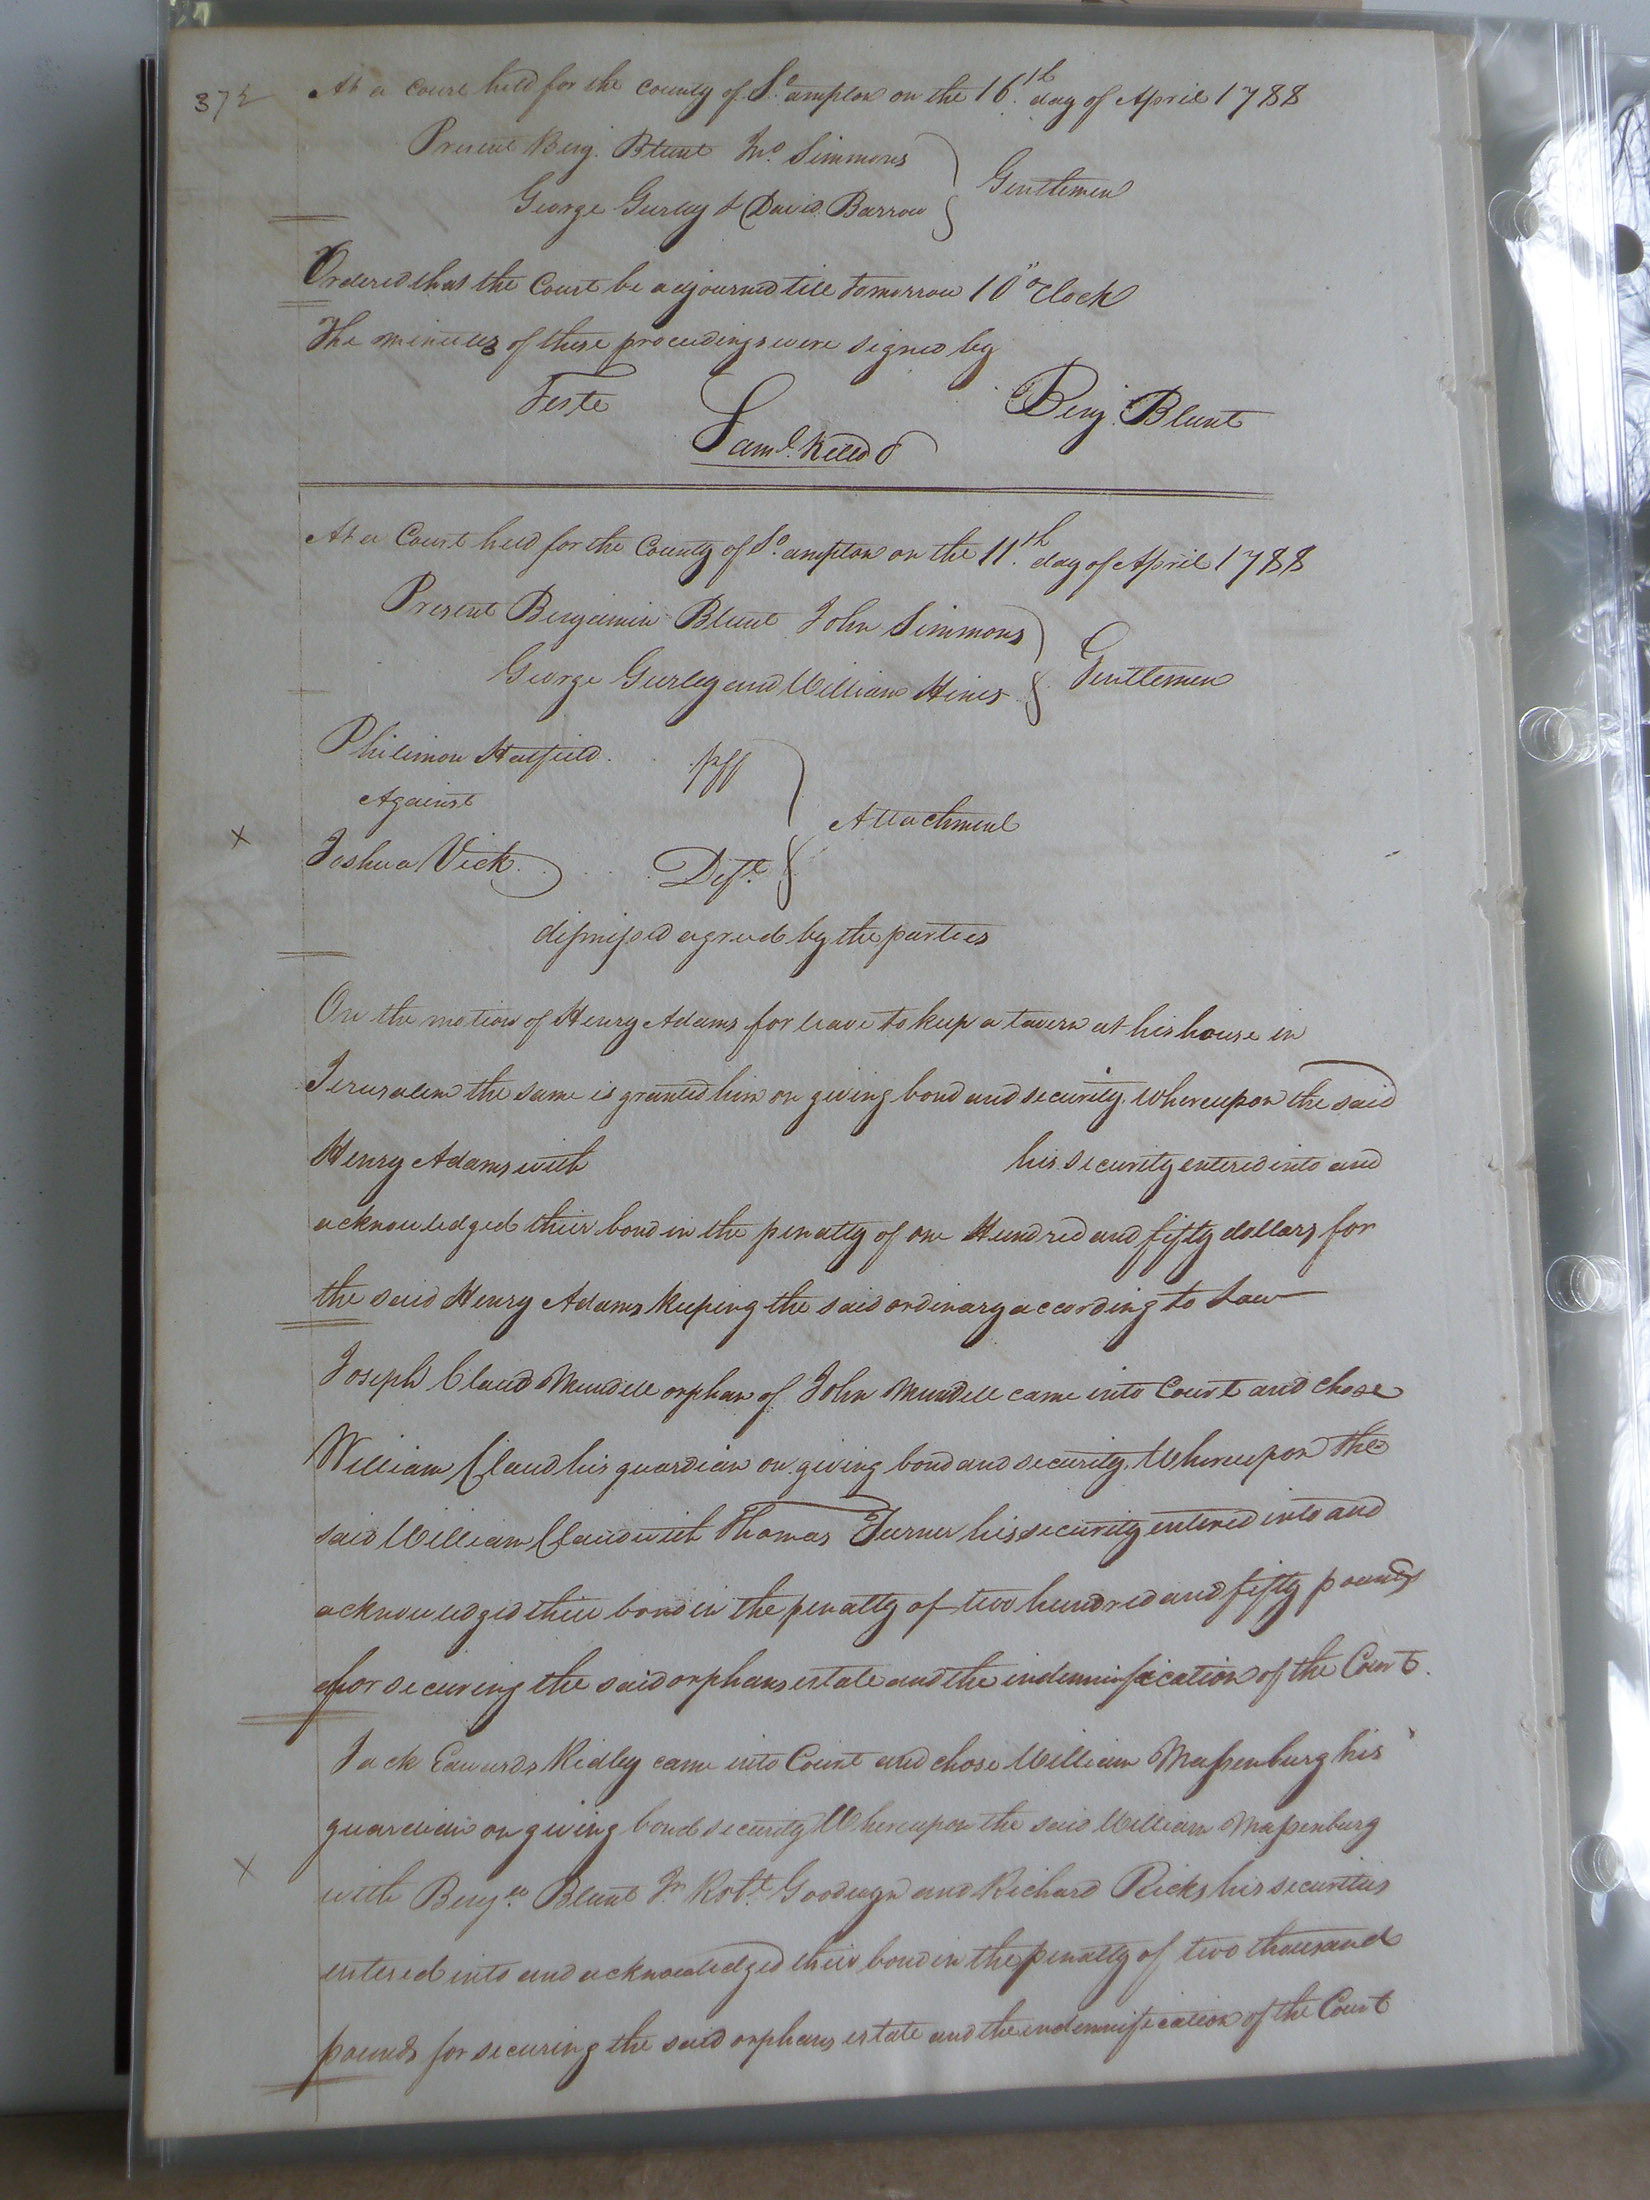 372
At a Court held for the County of So. ampton on the 16th. day of April 1788
Present Benj. Blunt Jno. Simmons
George Gurley & David Barrow } Gentlemen
Ordered that the Court be adjourned till tomorrow 10 o'Clock
The minutes of these proceedings were signed by
Teste Benj. Blunt
Saml. Kello
At a Court held for the County of So. ampton on the 11th. day of April 1788
Present Benjamin Blunt John Simmons
George Gurley and William Hines } Gentlemen
Philimon Hatfield plff
Against } Attachment
x Joshua Vick Deft.
dismissed agreed by the parties
On the motion of Henry Adams for leave to keep a tavern at his house in
Jerusalem the same is granted him on giving bond and security. Whereupon the said
Henry Adams with his security entered into and
acknowledged their bond in the penalty of one Hundred and fifty dollars for
the said Henry Adams keeping the said ordinary according to Law
Joseph Claud Mundell orphan of John Mundell came into Court and chose
William Claud his guardian on giving bond and security, Whereupon the
said William Claud with Thomas Turner his security entered into and
acknowledged their bond in the penalty of two hundred and fifty pounds
for securing the said orphans estate and the indemnification of the Court.
Jack Edwards Ridley came into Court and chose William Massenburg his
guardian on giving bond security Whereupon the said William Massenburg
x with Benjn. Blunt Jr Robt. Goodwyn and Richard Ricks his securities
entered into and acknowledged their bond in the penalty of two thousand
pounds for securing the said orphans estate and the indemnification of the Court